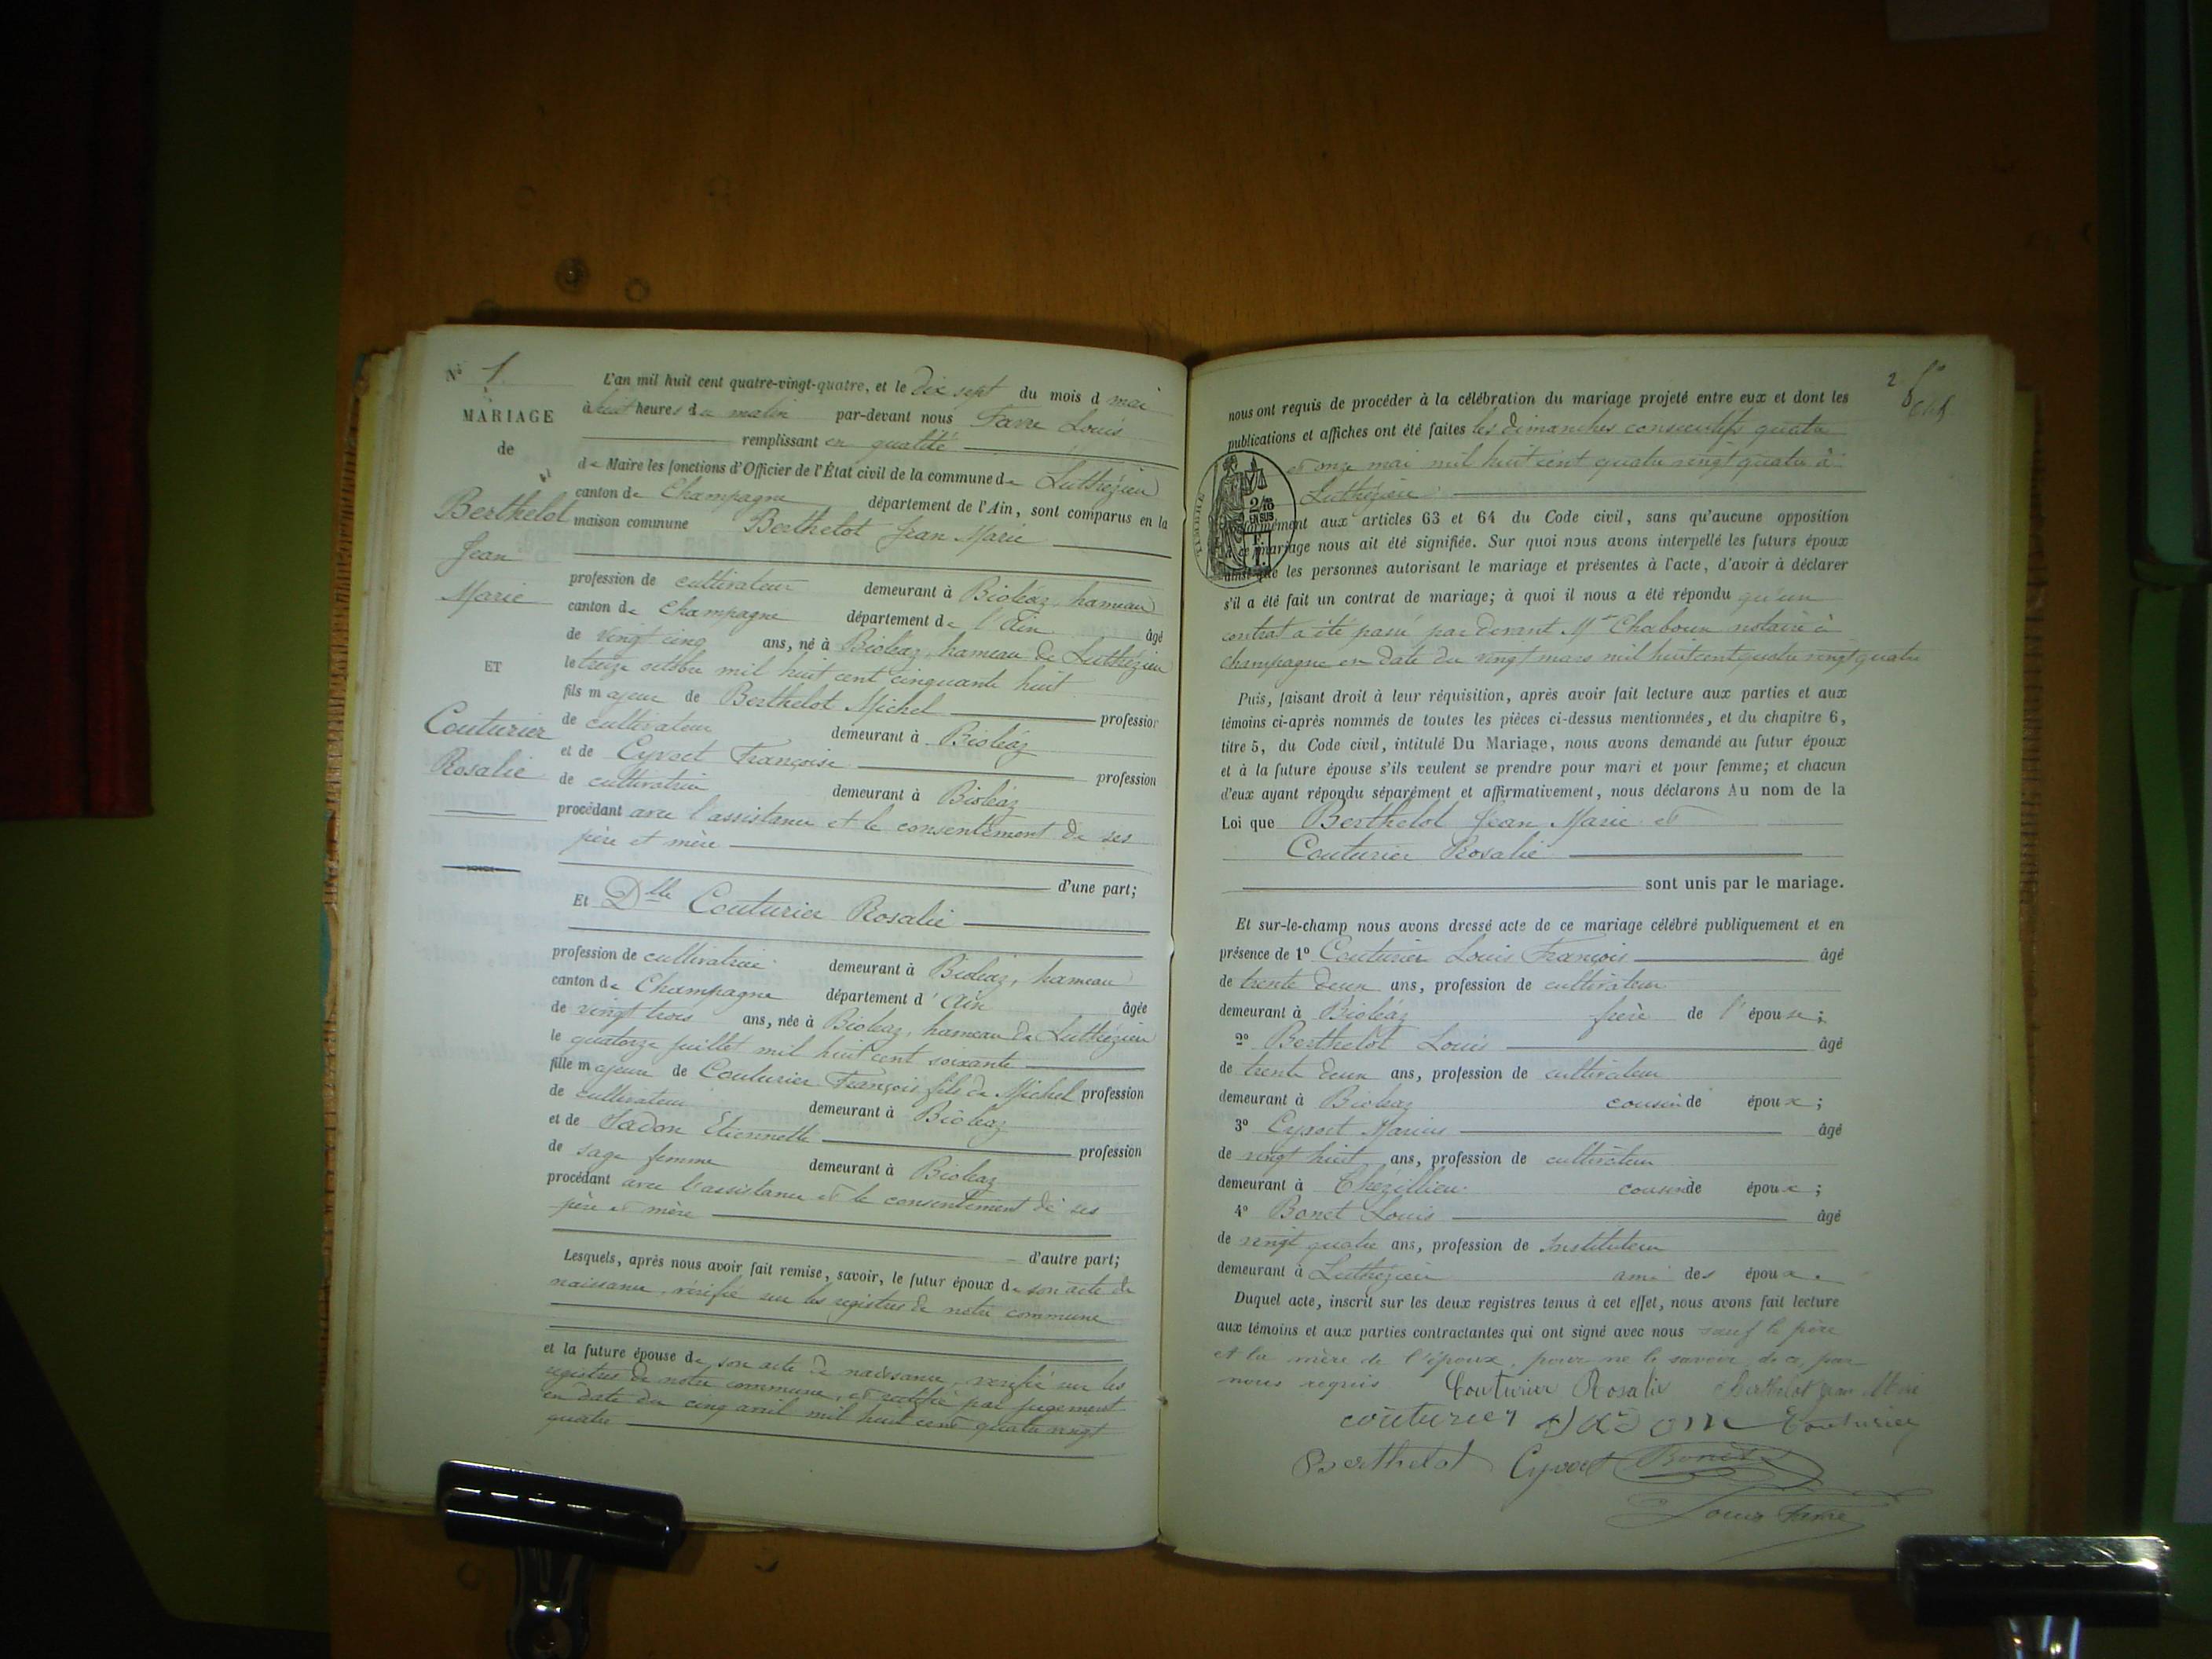 N° 1
MARIAGE
de
Berthelot
Jean
Marie
ET
Couturier
Rosalie
L'an mil huit cent quatre-vingt-quatre, et le dix sept du mois d mai
à huit heures du matin par-devant nous Favre Louis
remplissant en qualité
de Maire les fonctions d'Officier de l'État civil de la commune de Luthézieu
canton de Champagne département de l'Ain, sont comparus en la
maison commune Berthelot Jean Marie
profession de cultivateur demeurant à Bioléaz, hameau
canton de Champagne département de l'Ain âgé
de vingt cinq ans, né à Bioléaz, hameau de Luthézieu
le treize octobre mil huit cent cinquante huit
fils majeur de Berthelot Michel profession
de cultivateur demeurant à Bioléaz
et de Cyvoct Françoise profession
de cultivatrice demeurant à Bioléaz
procédant avec l'assistance et le consentement de ses
père et mère
d'une part;
Et Dlle Couturier Rosalie
profession de cultivatrice demeurant à Bioléaz, hameau
canton de Champagne département d'Ain âgée
de vingt trois ans, née à Bioléaz, hameau de Luthézieu
le quatorze juillet mil huit cent soixante
fille majeure de Couturier François fils de Michel profession
de cultivateur demeurant à Bioléaz
et de Jadon Etiennette profession
de sage femme demeurant à Bioléaz
procédant avec l'assistance et le consentement de ses
père et mère
d'autre part;
Lesquels, après nous avoir fait remise, savoir, le futur époux de son acte de
naissance, vérifié sur les registres de notre commune
et la future épouse de son acte de naissance, vérifié sur les
registres de notre commune, et rectifié par jugement
en date du cinq avril mil huit cent quatre vingt
quatre
2
nous ont requis de procéder à la célébration du mariage projeté entre eux et dont les
publications et affiches ont été faites les dimanches consécutifs quatre
et onze mai mil huit cent quatre vingt quatre à
Luthézieu
TIMBRE
2/10
EN SUS
conformément aux articles 63 et 64 du Code civil, sans qu'aucune opposition
à ce mariage nous ait été signifiée. Sur quoi nous avons interpellé les futurs époux
ainsi que les personnes autorisant le mariage et présentes à l'acte, d'avoir à déclarer
s'il a été fait un contrat de mariage; à quoi il nous a été répondu qu'un
contrat a été passé par devant Me Chaboux notaire à
Champagne en date du vingt mars mil huit cent quatre vingt quatre
Puis, faisant droit à leur réquisition, après avoir fait lecture aux parties et aux
témoins ci-après nommés de toutes les pièces ci-dessus mentionnées, et du chapitre 6,
titre 5, du Code civil, intitulé Du Mariage, nous avons demandé au futur époux
et à la future épouse s'ils veulent se prendre pour mari et pour femme; et chacun
d'eux ayant répondu séparément et affirmativement, nous déclarons Au nom de la
Loi que Berthelot Jean Marie et
Couturier Rosalie
sont unis par le mariage.
Et sur-le-champ nous avons dressé acte de ce mariage célébré publiquement et en
présence de 1° Couturier Louis François âgé
de trente deux ans, profession de cultivateur
demeurant à Bioléaz frère de l'épouse;
2° Berthelot Louis âgé
de trente deux ans, profession de cultivateur
demeurant à Bioléaz cousin de époux;
3° Cyvoct Marius âgé
de vingt huit ans, profession de cultivateur
demeurant à Chézillieu cousin de époux;
4° Bonet Louis âgé
de vingt quatre ans, profession de Instituteur
demeurant à Luthézieu ami des époux.
Duquel acte, inscrit sur les deux registres tenus à cet effet, nous avons fait lecture
aux témoins et aux parties contractantes qui ont signé avec nous sauf le père
et la mère de l'époux, pour ne le savoir de ce par
nous requis Couturier Rosalie Berthelot Jean Marie
couturier Jadon Couturier
Berthelot Cyvoct Bonet
Louis Favre